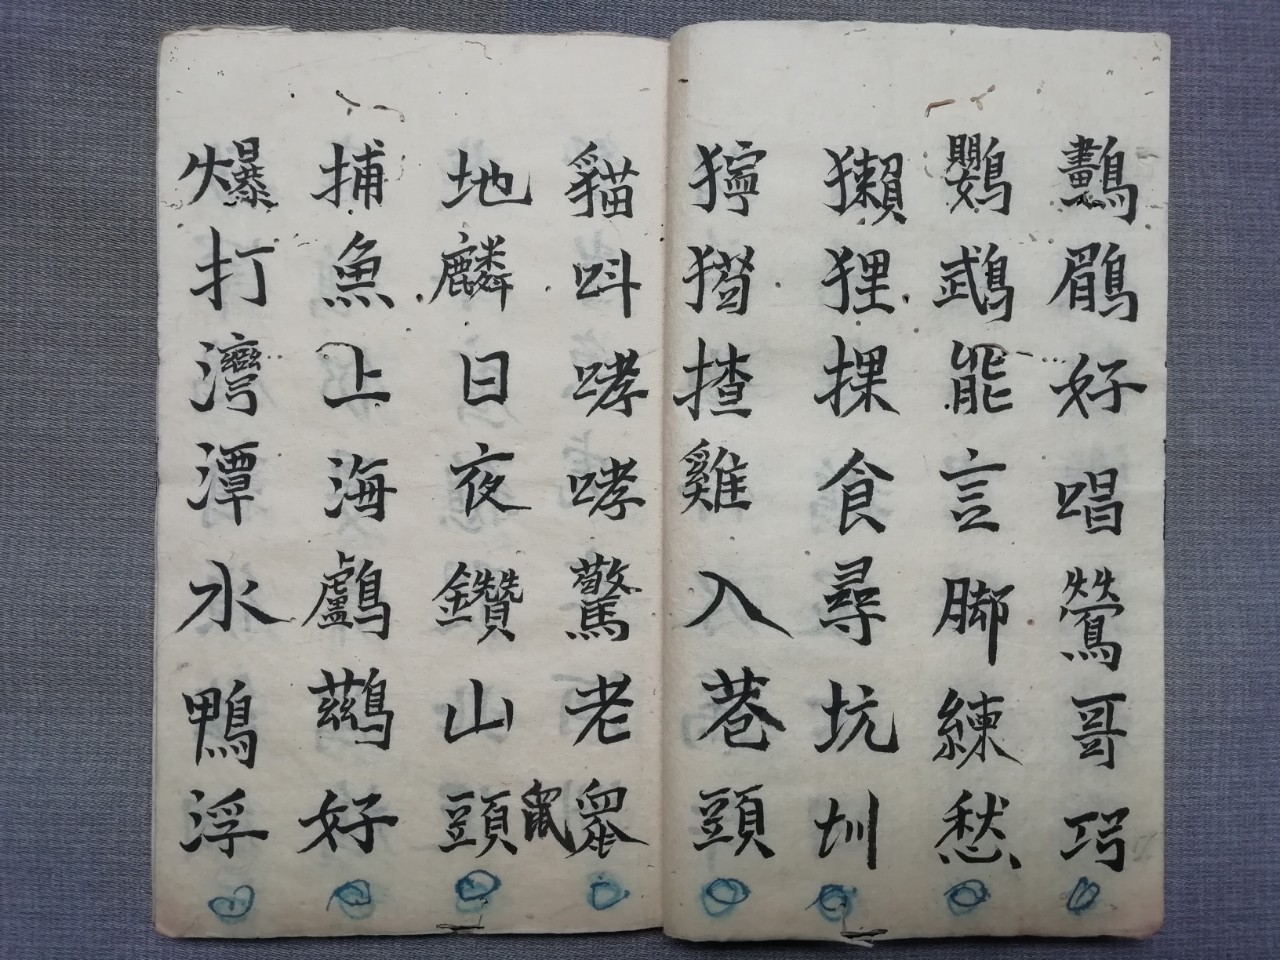 鷨鵑好唱鶯哥巧
鸚鵡能言脚練愁
獺狸捰食尋坑圳
獰猎揸雞入巷頭
貓呌哮哮驚老鼠
地麟日夜鑽山頭
捕魚上海鸕鷀好
爆打灣潭水鴨浮